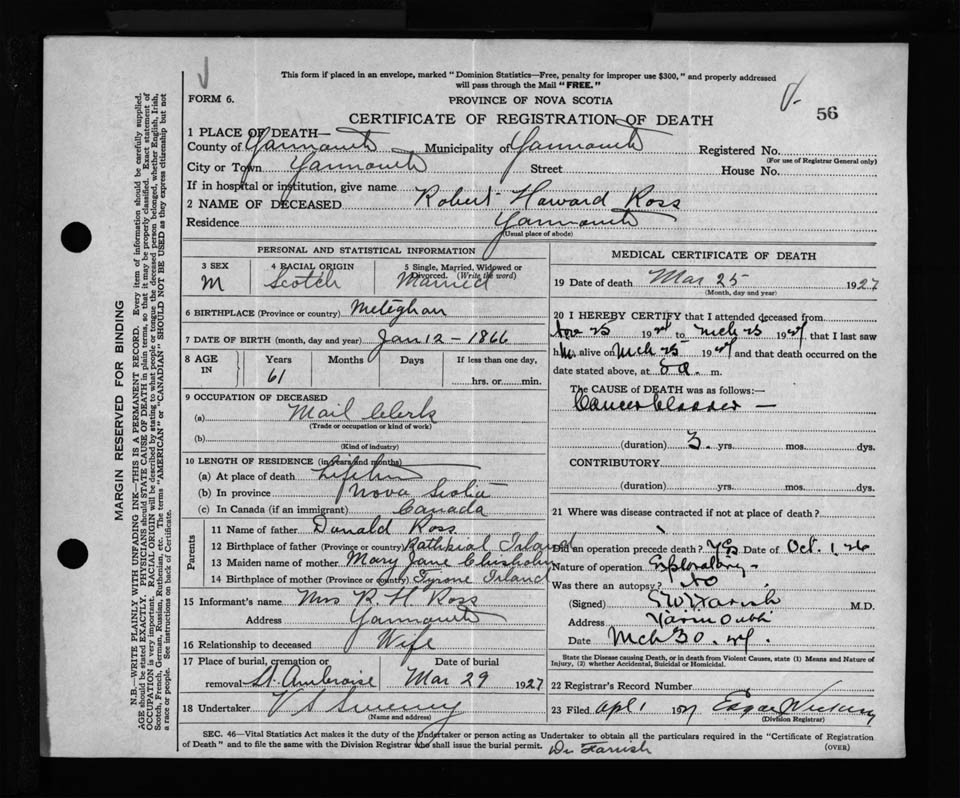 This form if placed in an envelope, marked "Dominion Statistics—Free, penalty for improper use $300," and properly addressed
will pass through the Mail "FREE."
FORM 6.
PROVINCE OF NOVA SCOTIA
56
CERTIFICATE OF REGISTRATION OF DEATH
1 PLACE OF DEATH—
County of Yarmouth Municipality of Yarmouth Registered No.
(For use of Registrar General only)
City or Town Yarmouth Street House No.
If in hospital or institution, give name
2 NAME OF DECEASED Robert Howard Ross
Residence Yarmouth
(Usual place of abode)
PERSONAL AND STATISTICAL INFORMATION
3 SEX 4 RACIAL ORIGIN 5 Single, Married, Widowed or Divorced. (Write the word)
M Scotch Married
6 BIRTHPLACE (Province or country) Meteghan
7 DATE OF BIRTH (month, day and year) Jan 12 - 1866
8 AGE IN Years Months Days If less than one day,
61 hrs. or min.
9 OCCUPATION OF DECEASED
(a) Mail Clerk
(Trade or occupation or kind of work)
(b)
(Kind of industry)
10 LENGTH OF RESIDENCE (in years and months)
(a) At place of death
(b) In province Nova Scotia
(c) In Canada (if an immigrant) Canada
Parents
11 Name of father Donald Ross
12 Birthplace of father (Province or country) Island
13 Maiden name of mother Mary Jane Chisholm
14 Birthplace of mother (Province or country) Tyrone Island
15 Informant's name Mrs R H Ross
Address Yarmouth
16 Relationship to deceased Wife
17 Place of burial, cremation or Date of burial
removal St. Ambroise Mar 29 1927
18 Undertaker V S Sweeny
(Name and address)
MEDICAL CERTIFICATE OF DEATH
19 Date of death Mar 25 1927
(Month, day and year)
20 I HEREBY CERTIFY that I attended deceased from
Nov 25 192 to Mch 25 1927 that I last saw
him alive on Mch 25 1927 and that death occurred on the
date stated above, at 8 a. m.
The CAUSE of DEATH was as follows:—
Cancer Bladder —
(duration) 3. yrs. mos. dys.
CONTRIBUTORY
(duration) yrs. mos. dys.
21 Where was disease contracted if not at place of death?
Did an operation precede death? Yes Date of Oct. 1, 26
Nature of operation Exploratory -
Was there an autopsy? No
(Signed) Farish M.D.
Address Yarmouth
Date Mch 30. 27.
State the Disease causing Death, or in death from Violent Causes, state (1) Means and Nature of
Injury, (2) whether Accidental, Suicidal or Homicidal.
22 Registrar's Record Number
23 Filed Apl 1 1927 Edgar
(Division Registrar)
SEC. 46—Vital Statistics Act makes it the duty of the Undertaker or person acting as Undertaker to obtain all the particulars required in the "Certificate of Registration
of Death" and to file the same with the Division Registrar who shall issue the burial permit. Dr Farish (OVER)
MARGIN RESERVED FOR BINDING
N.B.—WRITE PLAINLY WITH UNFADING INK—THIS IS A PERMANENT RECORD. Every item of information should be carefully supplied.
AGE should be stated EXACTLY. PHYSICIANS should STATE CAUSE OF DEATH in plain terms, so that it may be properly classified. Exact statement of
OCCUPATION is very important. RACIAL ORIGIN will be described by stating to what people or tongue the deceased person belonged, whether English, Irish,
Scotch, French, German, Russian, Ruthenian, etc. The terms "AMERICAN" or "CANADIAN" SHOULD NOT BE USED as they express citizenship but not
a race or people. See instructions on back of Certificate.